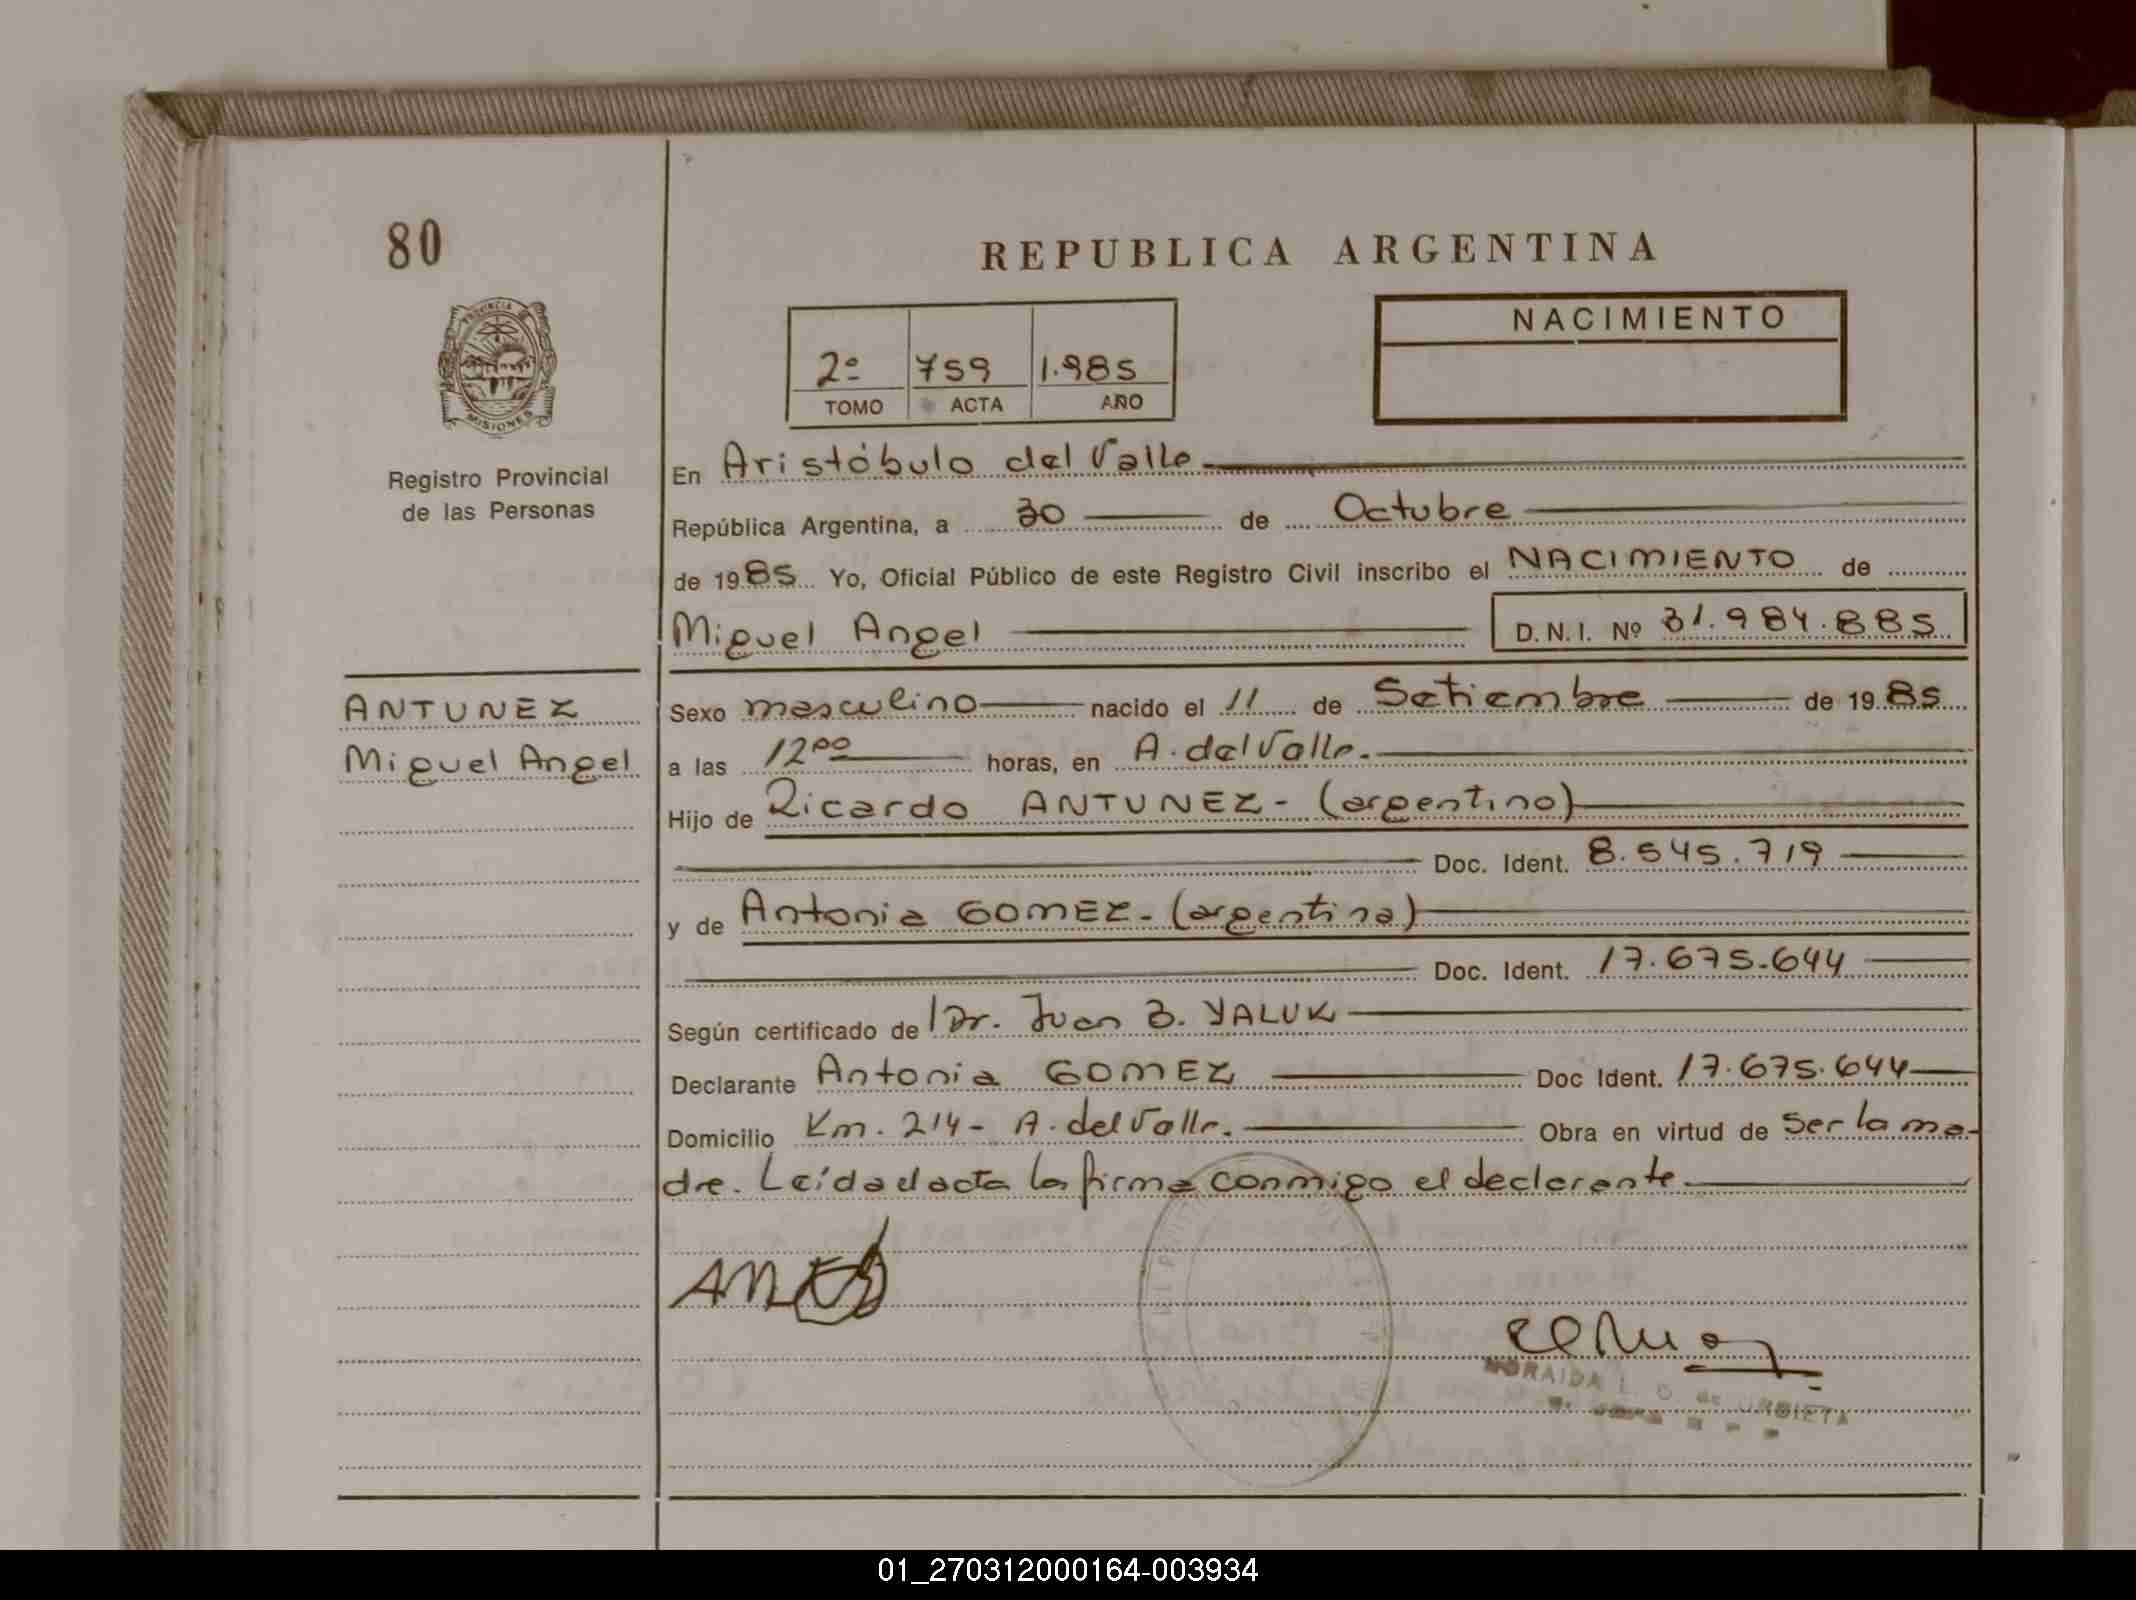 80
REPUBLICA ARGENTINA
PROVINCIA DE
MISIONES
NACIMIENTO
2º 759 1.985
TOMO ACTA AÑO
Registro Provincial
de las Personas
En Aristóbulo del Valle
República Argentina, a 30 de Octubre
de 1985 Yo, Oficial Público de este Registro Civil inscribo el NACIMIENTO de
Miguel Angel D.N.I. Nº 31.984.885
ANTUNEZ
Miguel Angel
Sexo masculino nacido el 11 de Setiembre de 1985
a las 12ºº horas, en A. del Valle.
Hijo de Ricardo ANTUNEZ - (argentino)
Doc. Ident. 8.545.719
y de Antonia GOMEZ - (argentina)
Doc. Ident. 17.675.644
Según certificado de Dr. Juan B. YALUK
Declarante Antonia GOMEZ Doc Ident. 17.675.644
Domicilio Km. 214 - A. del Valle. Obra en virtud de Ser la ma-
dre. Leída el acta la firma conmigo el declarante.
NORAIDA L. de URBIETA
01_270312000164-003934